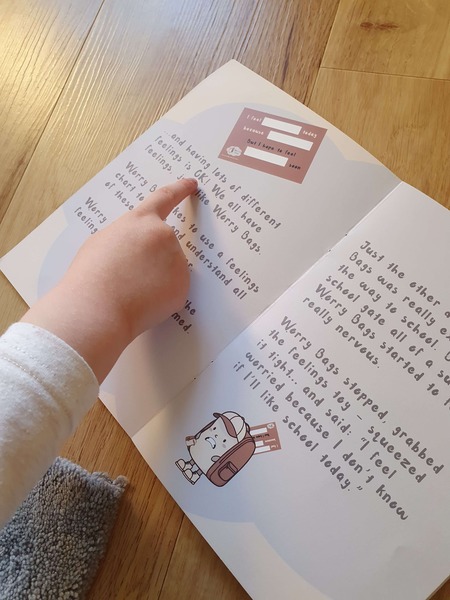 I feel today
because
But I hope to feel
soon
and having lots of different
feelings is OK! We all have
feelings like Worry Bags.
Worry to use a feelings
chart to and understand all
of these
Worry
feelings the
Just the other
Bags was really
the way to school.
school gate all of a
Worry Bags started to
really nervous.
Worry Bags stopped, grabbed
the feelings toy – squeezed
it tight... and said, "I feel
worried because I don't know
if I'll like school today."